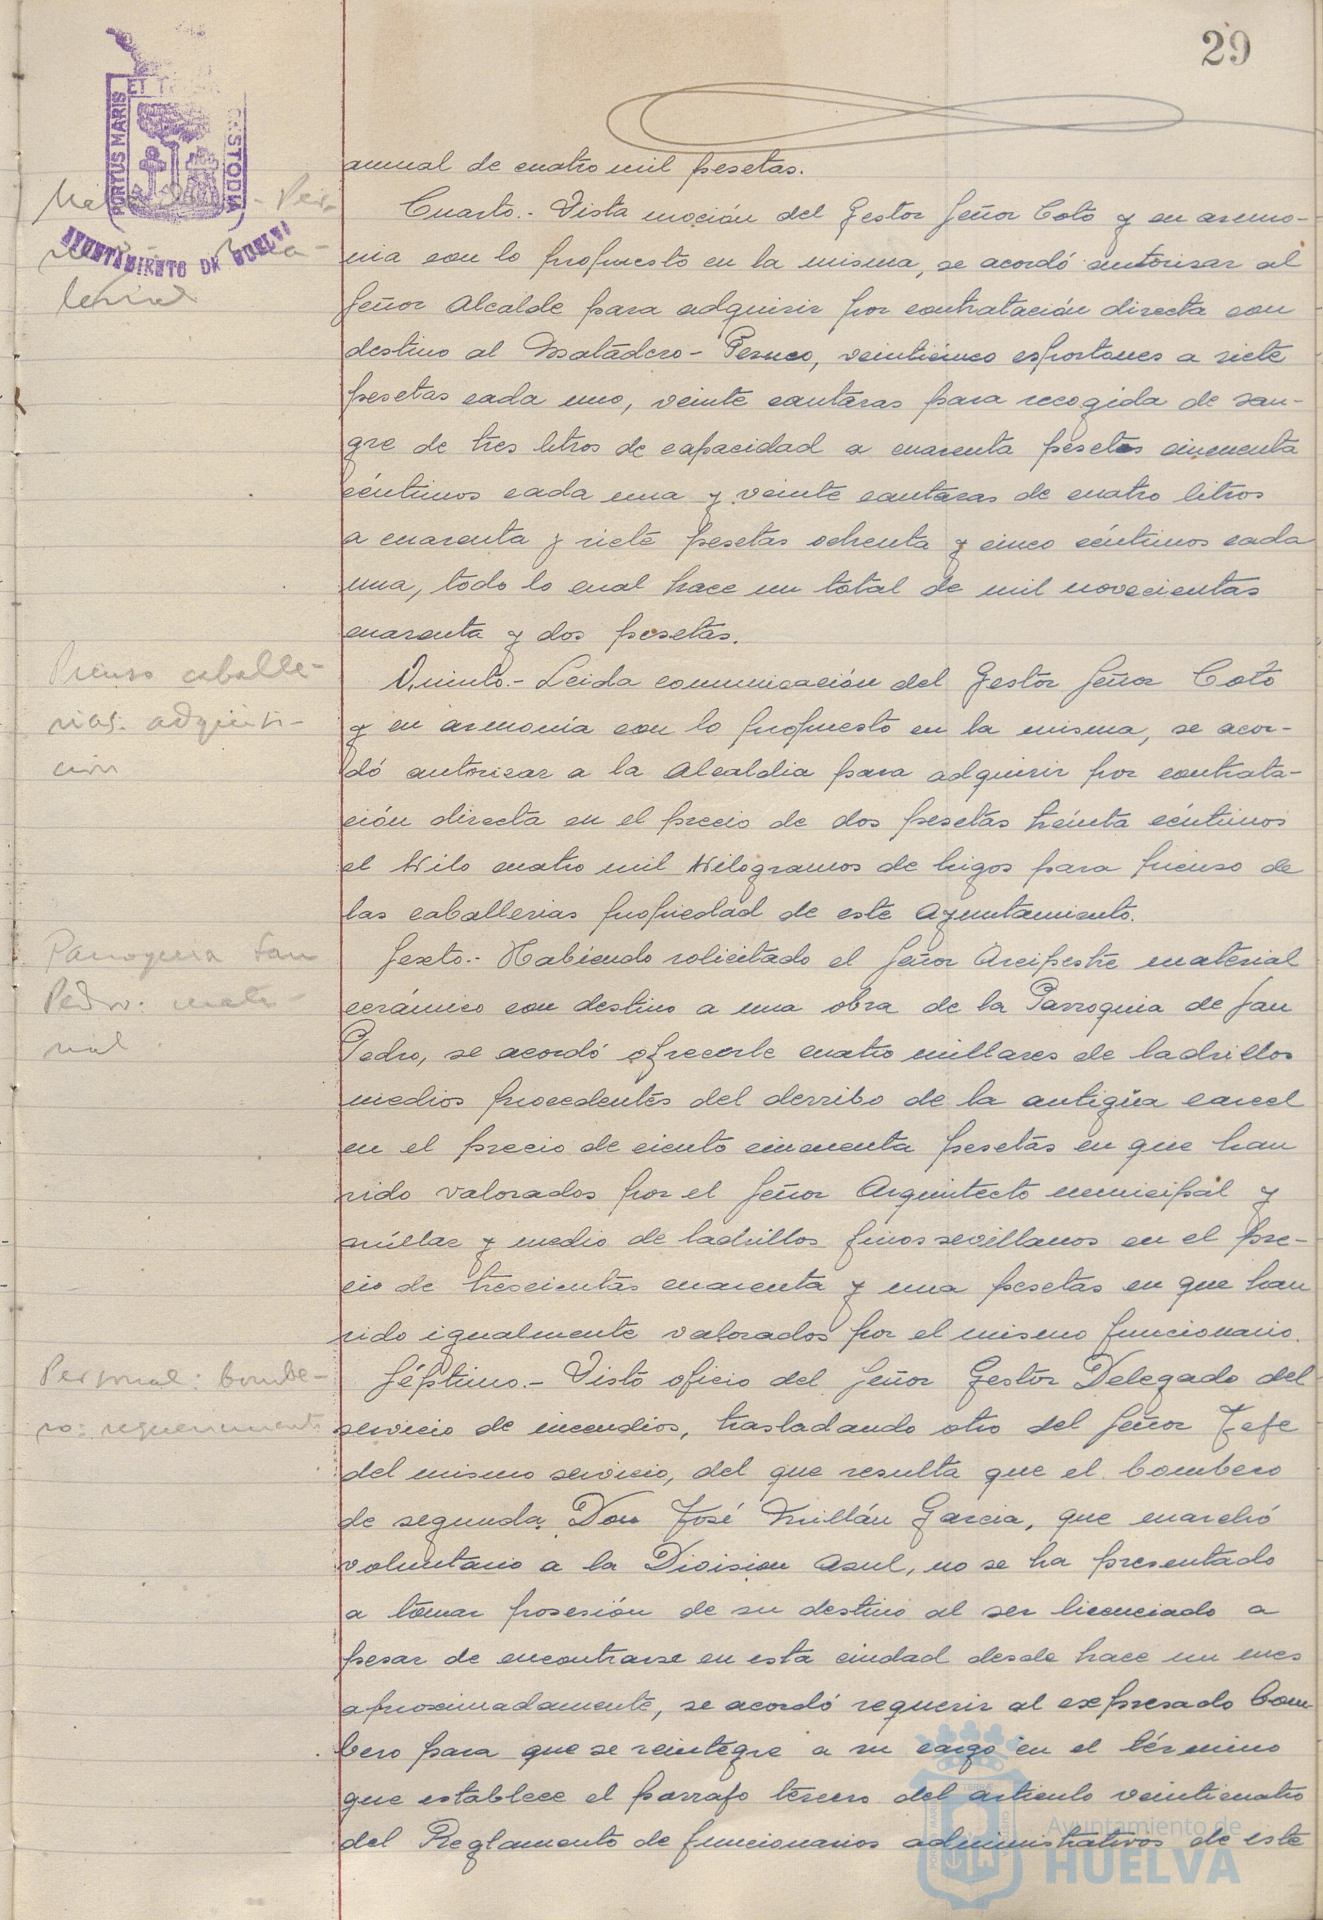 29
PORTUS MARIS ET TERRAE CUSTODIA
AYUNTAMIENTO DE HUELVA
anual de cuatro mil pesetas.
Cuarto.- Vista moción del Gestor Señor Coto y en armo-
nia con lo propuesto en la misma, se acordó autorizar al
Señor Alcalde para adquirir por contratación directa con
destino al Matadero-Perneo, veinticinco esportones a siete
pesetas cada uno, veinte cantaras para recogida de san-
gre de tres litros de capacidad a cuarenta pesetas cincuenta
céntimos cada una y veinte cantaras de cuatro litros
a cuarenta y siete pesetas ochenta y cinco céntimos cada
una, todo lo cual hace un total de mil novecientas
cuarenta y dos pesetas.
Pienso caballe-
rias: adquisi-
cion
Quinto.- Leida comunicación del Gestor Señor Coto
y en armonía con lo propuesto en la misma, se acor-
dó autorizar a la Alcaldia para adquirir por contrata-
ción directa en el precio de dos pesetas treinta céntimos
el kilo cuatro mil kilogramos de higos para pienso de
las caballerias propiedad de este Ayuntamiento.
Parroquia San
Pedro: mate-
rial
Sexto.- Habiendo solicitado el Señor Arcipestre material
cerámico con destino a una obra de la Parroquia de San
Pedro, se acordó ofrecerle cuatro millares de ladrillos
medios procedentes del derribo de la antigüa carcel
en el precio de ciento cincuenta pesetas en que han
sido valorados por el Señor Arquitecto municipal y
millar y medio de ladrillos finos sevillanos en el pre-
cio de trescientas cuarenta y una pesetas en que han
sido igualmente valorados por el mismo funcionario.
Personal: bombe-
ro: requerimiento
Séptimo.- Visto oficio del Señor Gestor Delegado del
servicio de incendios, trasladando otro del Señor Jefe
del mismo servicio, del que resulta que el bombero
de segunda Don José Millán Garcia, que marchó
voluntario a la Division Asul, no se ha presentado
a tomar posesión de su destino al ser licenciado a
pesar de encontrarse en esta ciudad desde hace un mes
aproximadamente, se acordó requerir al expresado bom-
bero para que se reintegre a su cargo en el término
que establece el parrafo tercero del articulo veinticuatro
del Reglamento de funcionarios administrativos de este
Ayuntamiento de
HUELVA